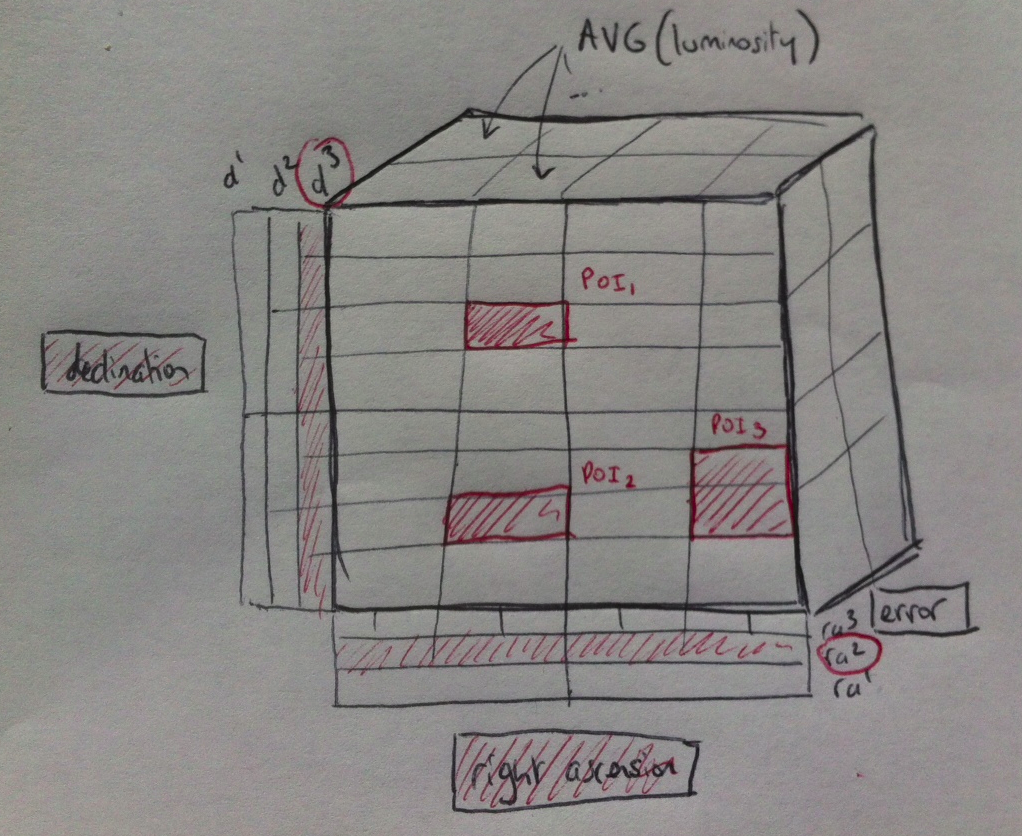 AVG(luminosity)
...
d¹ d² d³
POI₁
declination
POI₃
POI₂
error
ra³
ra²
ra¹
right ascension